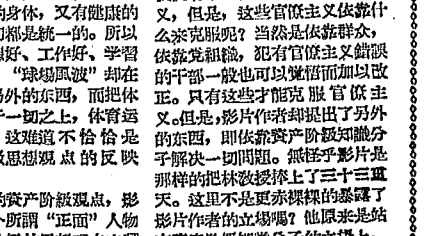 的身体，又有健康的
都是統一的。所以
好、工作好、学習
"球場風波"却在
另外的东西，而把体
一切之上，体育运
这难道不恰恰是
思想观点的反映
的資产阶級观点，影
所謂"正面"人物
义，但是，这些官僚主义依靠什
么来克服呢？当然是依靠群众，
依靠党組織，犯有官僚主义錯誤
的干部一般也可以覚悟而加以改
正。只有这些才能克服官僚主
义。但是，影片作者却提出了另外
的东西，即依靠資产阶級知識分
子解决一切問題。無怪乎影片是
那样的把林教授捧上了三十三重
天。这里不是更赤裸裸的暴露了
影片作者的立場嗎？他原来是站